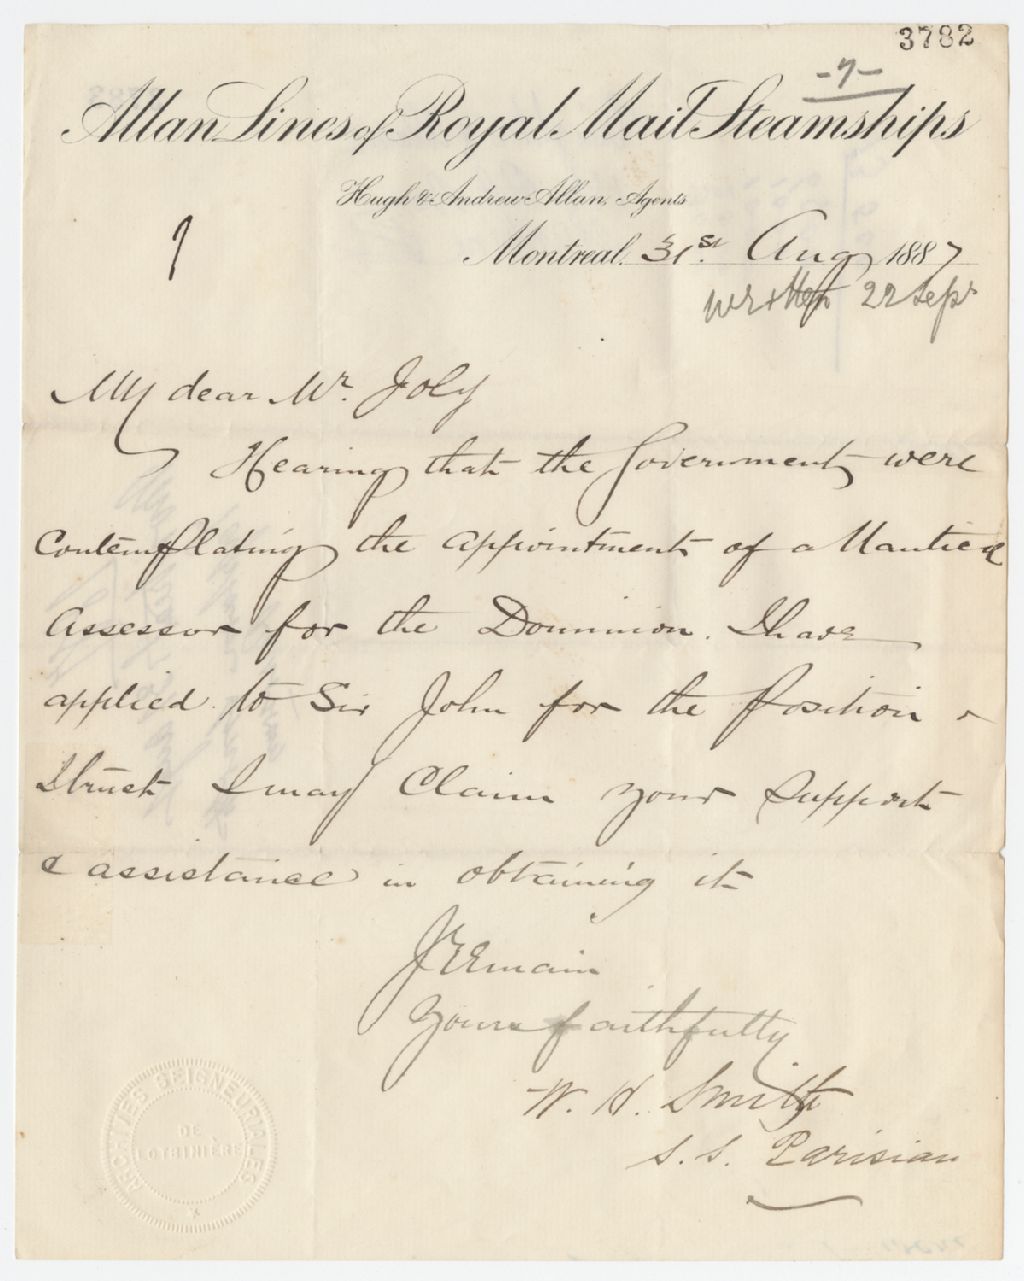 3782
-7-
Allan Lines of Royal Mail Steamships
Hugh & Andrew Allan, Agents
Montreal, 31st. Aug 1887
written 22 Sept
My dear Mr. Joly
Hearing that the Government were
Contemplating the appointment of a Nautical
Assessor for the Dominion. I have
applied to Sir John for the Position &
I trust I may Claim your Support
& assistance in obtaining it
I remain
Yours faithfully
W. H. Smith
S.S. Parisian
ARCHIVES SEIGNEURIALES
DE
LOTBINIÈRE